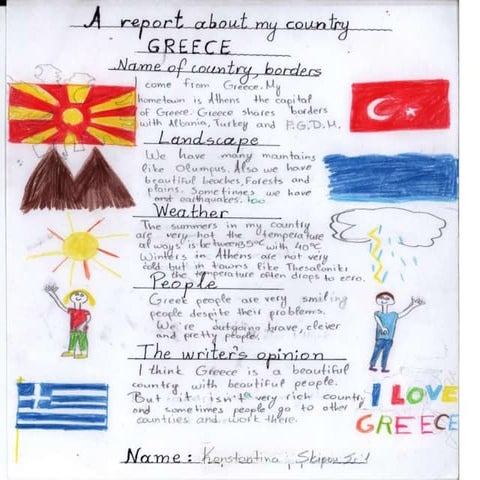 A report about my country
GREECE
Name of country, borders
I come from Greece. My
hometown is Athens the capital
of Greece. Greece shares borders
with Albania, Turkey and
Landscape
We have many mountains
like Olumpus. Also we have
beautiful beaches, Forests and
plains. Sometimes we have
and eathquakes. too
Weather
The summers in my country
are very hot the temperature
always is between 35°C with 40°C
Winters in Athens are not very
cold but in towns like Thesaloniki
the temperature often drops to zero.
People
Greek people are very smiling
people despite their problems.
We're outgoing brave, clever
and pretty people.
The writer's opinion
I think Greece is a beautiful
country with beautiful people.
But it isn't a very rich country
and sometimes people go to other
countries and work there.
I LOVE
GREECE
Name: Konstantina